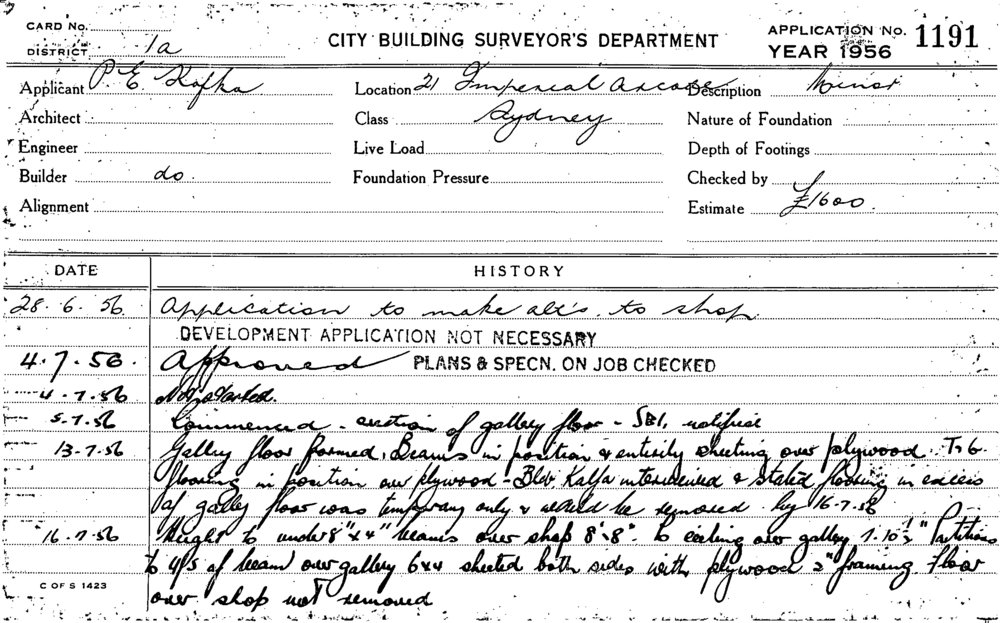 CARD No.
DISTRICT 1a
CITY BUILDING SURVEYOR'S DEPARTMENT
APPLICATION No. 1191
YEAR 1956
Applicant P. E. Kafka
Location 21 Imperial Arcade
Description Minor
Architect
Class Sydney
Nature of Foundation
Engineer
Live Load
Depth of Footings
Builder do.
Foundation Pressure
Checked by
Alignment
Estimate £1600.
DATE HISTORY
28. 6. 56 Application to make alt's. to shop
DEVELOPMENT APPLICATION NOT NECESSARY
4. 7. 56. Approved PLANS & SPECN. ON JOB CHECKED
4. 7. 56 Not started.
5. 7. 56 Commenced - erection of gallery floor - SBI, notified
13. 7. 56 Gallery floor formed. Beams in position & entirely sheeting over plywood. T & G.
flooring in position over plywood - Bldr Kafka interviewed & stated flooring in excess
of gallery floor was temporary only & would be removed by 16-7-56
16. 7. 56 Height to under 8" x 4" beams over shop 8'.8". to ceiling over gallery 7.10½" Partitions
to U/S of beam over gallery 6x4 sheeted both sides with plywood 2" framing. Floor
over shop not removed
C OF S 1423